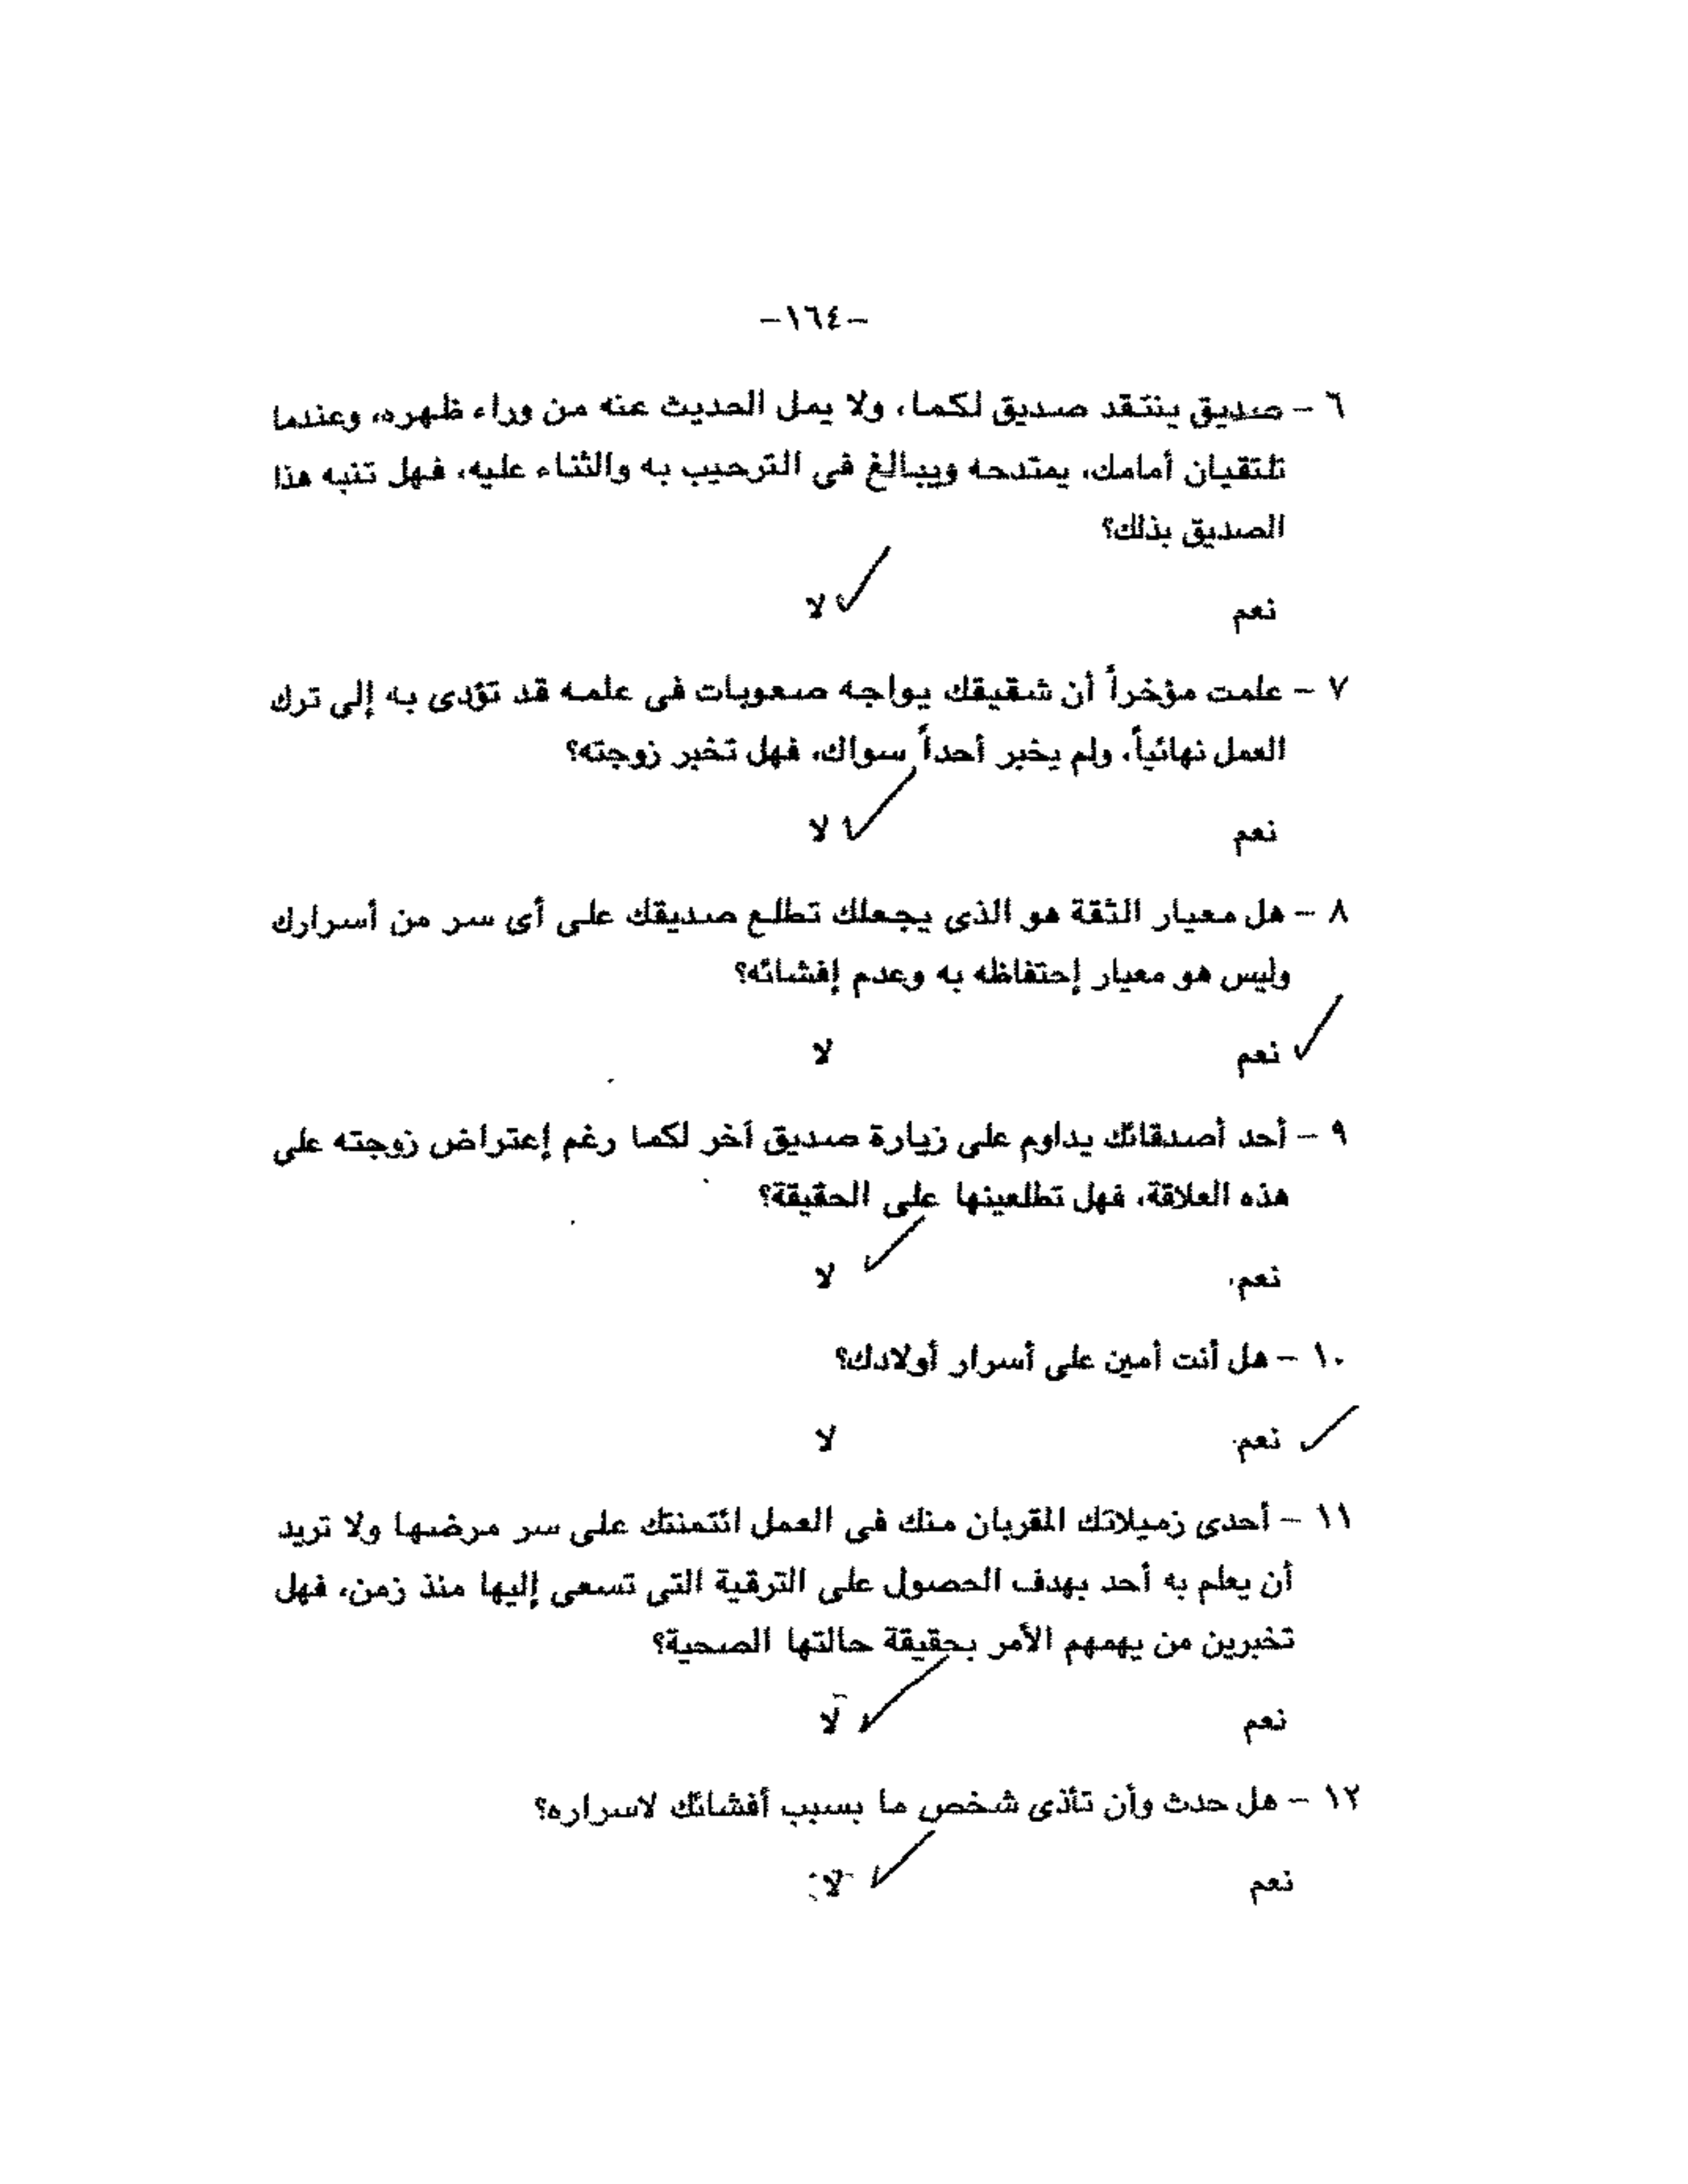 -١٦٤-
٦ - صديق ينتقد صديق لكما، ولا يمل الحديث عنه من وراء ظهره، وعندما
تلتقيان أمامك، يمتدحه ويبالغ فى الترحيب به والثناء عليه، فهل تنبه هذا
الصديق بذلك؟
نعم ✓ لا
٧ - علمت مؤخراً أن شقيقك يواجه صعوبات فى علمه قد تؤدى به إلى ترك
العمل نهائياً، ولم يخبر أحداً سواك، فهل تخبر زوجته؟
نعم ✓ لا
٨ - هل معيار الثقة هو الذى يجعلك تطلع صديقك على أى سر من أسرارك
وليس هو معيار إحتفاظه به وعدم إفشائه؟
✓ نعم لا
٩ - أحد أصدقائك يداوم على زيارة صديق آخر لكما رغم إعتراض زوجته على
هذه العلاقة، فهل تطلعينها على الحقيقة؟
نعم ✓ لا
١٠ - هل أنت أمين على أسرار أولادك؟
✓ نعم لا
١١ - أحدى زميلاتك المقربان منك فى العمل ائتمنتك على سر مرضها ولا تريد
أن يعلم به أحد بهدف الحصول على الترقية التى تسعى إليها منذ زمن، فهل
تخبرين من يهمهم الأمر بحقيقة حالتها الصحية؟
نعم ✓ لا
١٢ - هل حدث وأن تأذى شخص ما بسبب أفشائك لاسراره؟
نعم ✓ لا